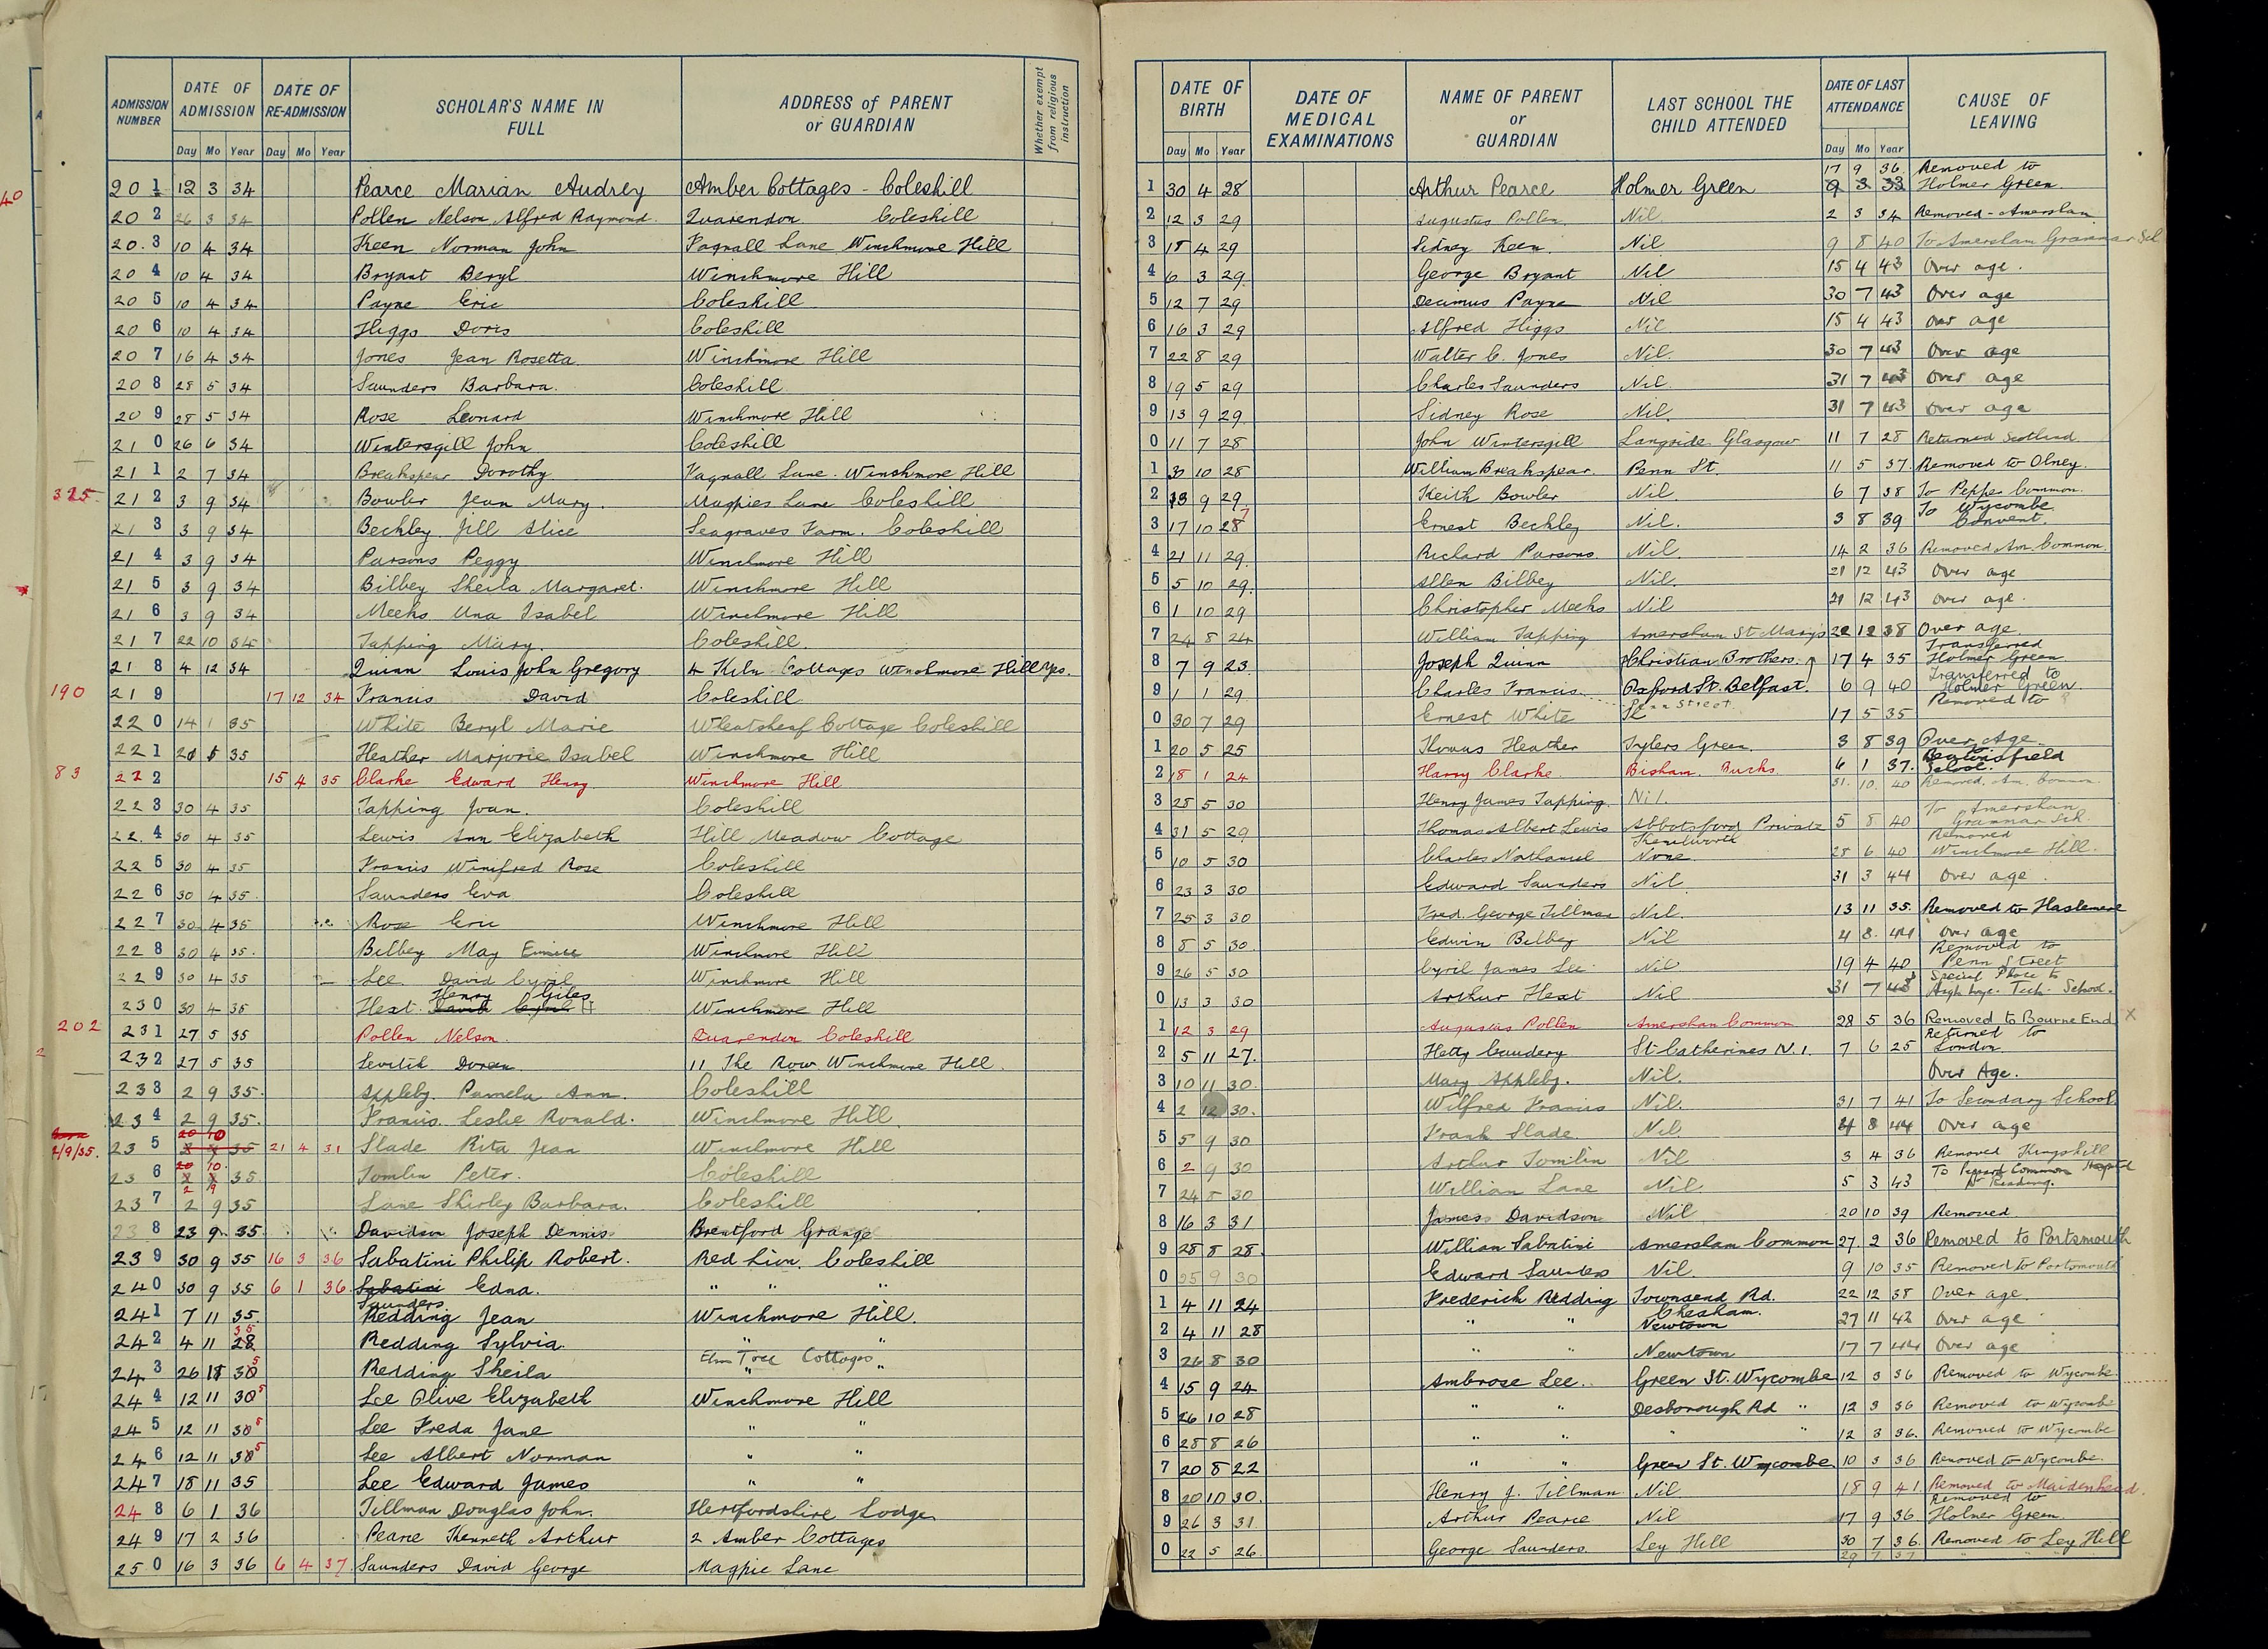 ADMISSION NUMBER | DATE OF ADMISSION Day Mo Year | DATE OF RE-ADMISSION Day Mo Year | SCHOLAR'S NAME IN FULL | ADDRESS of PARENT or GUARDIAN | Whether exempt from religious instruction
201 12 3 34 Pearce Marian Audrey Amber Cottages - Coleshill
202 26 3 34 Pollen Nelson Alfred Raymond. Quarendon Coleshill
20.3 10 4 34 Keen Norman John Fagnall Lane Winchmore Hill
204 10 4 34 Bryant Beryl Winchmore Hill
205 10 4 34 Payne Eric Coleshill
206 10 4 34 Higgs Doris Coleshill
207 16 4 34 Jones Jean Rosetta Winchmore Hill
208 28 5 34 Saunders Barbara. Coleshill
209 28 5 34 Rose Leonard Winchmore Hill
210 26 6 34 Wintersgill John Coleshill
211 2 7 34 Breakspear Dorothy Fagnall Lane. Winchmore Hill
325 212 3 9 34 Bowler Jean Mary. Magpies Lane Coleshill
213 3 9 34 Beckley Jill Alice Seagraves Farm. Coleshill
214 3 9 34 Parsons Peggy Winchmore Hill
215 3 9 34 Bilbey Sheila Margaret. Winchmore Hill
216 3 9 34 Meeks Una Isabel Winchmore Hill
217 22 10 34 Tapping Mary. Coleshill.
218 4 12 34 Quinn Louis John Gregory 4 Kiln Cottages Winchmore Hill Yes.
190 219 17 12 34 Francis David Coleshill
220 14 1 35 White Beryl Marie Wheatsheaf Cottage Coleshill
221 Heather Marjorie Isabel Winchmore Hill
83 222 15 4 35 Clarke Edward Henry Winchmore Hill
223 30 4 35 Tapping Joan. Coleshill
22.4 30 4 35 Lewis Ann Elizabeth Hill Meadow Cottage
225 30 4 35 Francis Winifred Rose Coleshill
226 30 4 35 Saunders Eva Coleshill
227 30 4 35 Rose Eric Winchmore Hill
228 30 4 35 Bilbey May Winchmore Hill
229 30 4 35 Lee David Cyril Winchmore Hill
Henry Giles
230 30 4 35 Hext Winchmore Hill
202 231 27 5 35 Pollen Nelson. Quarendon Coleshill
232 27 5 35 Doreen 11 The Row Winchmore Hill.
233 2 9 35 Appleby. Pamela Ann. Coleshill
234 2 9 35. Francis. Leslie Ronald. Winchmore Hill
20 10
2/9/35. 235 35 21 4 31 Slade Rita Jean Winchmore Hill
20 10.
236 35 Tomlin Peter. Coleshill
2 9
237 2 9 35 Lane Shirley Barbara. Coleshill
238 23 9 35 Davidson Joseph Dennis Brentford Grange
239 30 9 35 16 3 36 Sabatini Philip Robert. Red Lion. Coleshill
240 30 9 35 6 1 36 Sabatini Edna. " " "
Saunders.
241 7 11 35. Redding Jean Winchmore Hill.
242 4 11 28 35 Redding Sylvia " "
Elm Tree Cottages
243 26 Redding Sheila " "
244 12 11 30 5 Lee Olive Elizabeth Winchmore Hill
245 12 11 30 5 Lee Freda Jane " "
246 12 11 30 5 Lee Albert Norman " "
247 18 11 35 Lee Edward James " "
248 6 1 36 Tillman Douglas John. Hertfordshire Lodge
249 17 2 36 Pearce Kenneth Arthur 2 Amber Cottages
250 16 3 36 6 4 37. Saunders David George Magpie Lane
DATE OF BIRTH Day Mo Year | DATE OF MEDICAL EXAMINATIONS | NAME OF PARENT or GUARDIAN | LAST SCHOOL THE CHILD ATTENDED | DATE OF LAST ATTENDANCE Day Mo Year | CAUSE OF LEAVING
17 9 36. Removed to
1 30 4 28 Arthur Pearce Holmer Green 9 3 33 Holmer Green.
2 12 3 29 Augustus Pollen Nil. 2 3 34 Removed - Amersham
3 18 4 29 Sidney Keen. Nil 9 8 40 To Amersham Grammar Sch
4 6 3 29. George Bryant Nil 15 4 43 Over age.
5 12 7 29 Decimus Payne Nil 30 7 43 Over age
6 16 3 29 Alfred Higgs Nil. 15 4 43 Over age
7 22 8 29 Walter C. Jones Nil. 30 7 43 Over age
8 19 5 29 Charles Saunders Nil. 31 7 43 Over age
9 13 9 29 Sidney Rose Nil. 31 7 43 Over age
0 11 7 28 John Wintersgill Langside Glasgow 11 7 28 Returned Scotland
1 30 10 28 William Breakspear. Penn St. 11 5 37 Removed to Olney.
2 13 9 29 Keith Bowler Nil. 6 7 38 To Common.
3 17 10 28 7 Ernest Beckley Nil. 3 8 39 To Wycombe Convent.
4 21 11 29 Richard Parsons. Nil. 14 2 36 Removed Am. Common.
5 5 10 29. Allen Bilbey Nil. 21 12 43 Over age
6 1 10 29 Christopher Meeks Nil 21 12 43 Over age.
7 24 8 24 William Tapping Amersham St Mary's 22 12 38 Over age
Transferred
8 7 9 23 Joseph Quinn Christian Brothers. 17 4 35 Holmer Green
Transferred to
9 1 1 29. Charles Francis Oxford St. Belfast. 6 9 40 Holmer Green
Penn Street. Removed to
0 30 7 29 Ernest White 17 5 35
1 20 5 25 Thomas Heather Tylers Green. 3 8 39 Over Age
2 18 1 24 Harry Clarke. Bisham. Bucks. 6 1 37. Beaconsfield School.
3 28 5 30 Henry James Tapping. Nil. 31. 10. 40 Removed. Am. Common.
To Amersham
4 31 5 29 Thomas Albert Lewis Abbotsford Private 5 8 40 Grammar Sch.
Kenilworth Removed
5 10 5 30 Charles Nathaniel None. 28 6 40 Winchmore Hill.
6 23 3 30 Edward Saunders Nil. 31 3 44 Over age.
7 25 3 30 Fred. George Tillman Nil. 13 11 35. Removed to Haslemere
8 8 5 30 Edwin Bilbey Nil 4 8 44 Over age
Removed to
9 26 5 30 Cyril James Lee Nil 19 4 40 Penn Street
Special Place to
0 13 3 30 Arthur Hext Nil 31 7 43 High Wyc. Tech. School.
1 12 3 29 Augustus Pollen Amersham Common 28 5 36 Removed to Bourne End X
Returned to
2 5 11 27. Hetty Caudery St Catherines N.1. 7 6 25 London.
3 10 11 30. Mary Appleby. Nil. Over Age.
4 2 12 30. Wilfred Francis Nil. 31 7 41 To Secondary School
5 5 9 30 Frank Slade. Nil. 8 44 Over age
6 2 9 30 Arthur Tomlin Nil 3 4 36 Removed Kingshill
7 24 8 30 William Lane Nil. 5 3 43 To Common Nr Reading.
8 16 3 31 James Davidson Nil 20 10 39 Removed.
9 28 8 28. William Sabatini Amersham Common 27 2 36 Removed to Portsmouth
0 25 9 30 Edward Saunders Nil. 9 10 35 Removed to Portsmouth
1 4 11 24 Frederick Redding Townsend Rd. 22 12 38 Over age.
Chesham.
2 4 11 28 " " Newtown 27 11 42 Over age
3 26 8 30 " " Newtown 17 7 44 Over age
4 15 9 24 Ambrose Lee. Green St. Wycombe 12 3 36 Removed to Wycombe.
5 26 10 28 " " Desborough Rd " 12 3 36 Removed to Wycombe
6 28 8 26 " " " " 12 3 36. Removed to Wycombe
7 20 8 22 " " Green St. Wycombe 10 3 36 Removed to Wycombe.
8 20 10 30. Henry J. Tillman Nil. 18 9 41. Removed to Maidenhead.
Removed to
9 26 3 31 Arthur Pearce Nil 17 9 36 Holmer Green
0 22 5 26 George Saunders. Ley Hill 30 7 36. Removed to Ley Hill
29 7 37 " " "